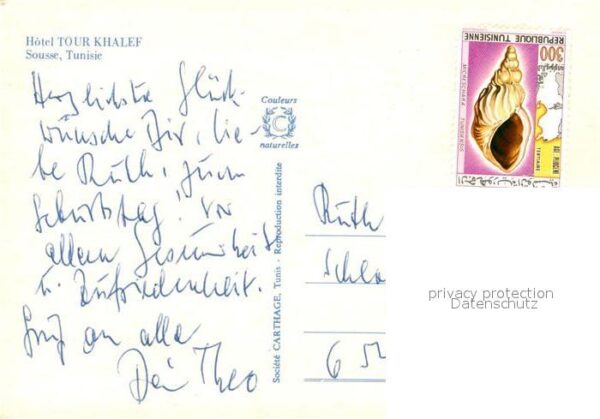 Hôtel TOUR KHALEF
Sousse, Tunisie
Herzlichste Glück-
wünsche Dir, lie-
be Ruth, zum
Geburtstag! Vor
allem Gesundheit
u. Zufriedenheit.
Gruß an alle
Dein Theo
Couleurs
C
naturelles
Société CARTHAGE, Tunis - Reproduction interdite
REPUBLIQUE TUNISIENNE
300
TERTIAIRE
Ruth
Schlo
6 52
privacy protection
Datenschutz